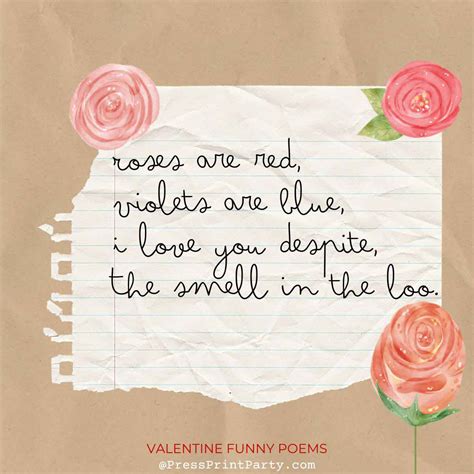 roses are red,
violets are blue,
i love you despite,
the smell in the loo.
VALENTINE FUNNY POEMS
@PressPrintParty.com